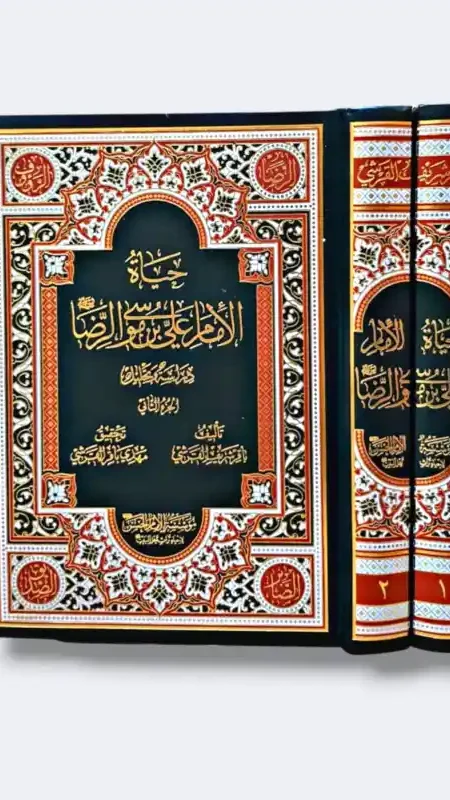 الرضا
الرؤوف
حياة
الإمام علي بن موسى الرضا
دراسة وتحليل
الجزء الثاني
تأليف
باقر شريف القرشي
تحقيق
مهدي باقر القرشي
مؤسسة الإمام الحسن
الصابر
شريف القرشي
الإمام
الرضا
٢
حياة
١